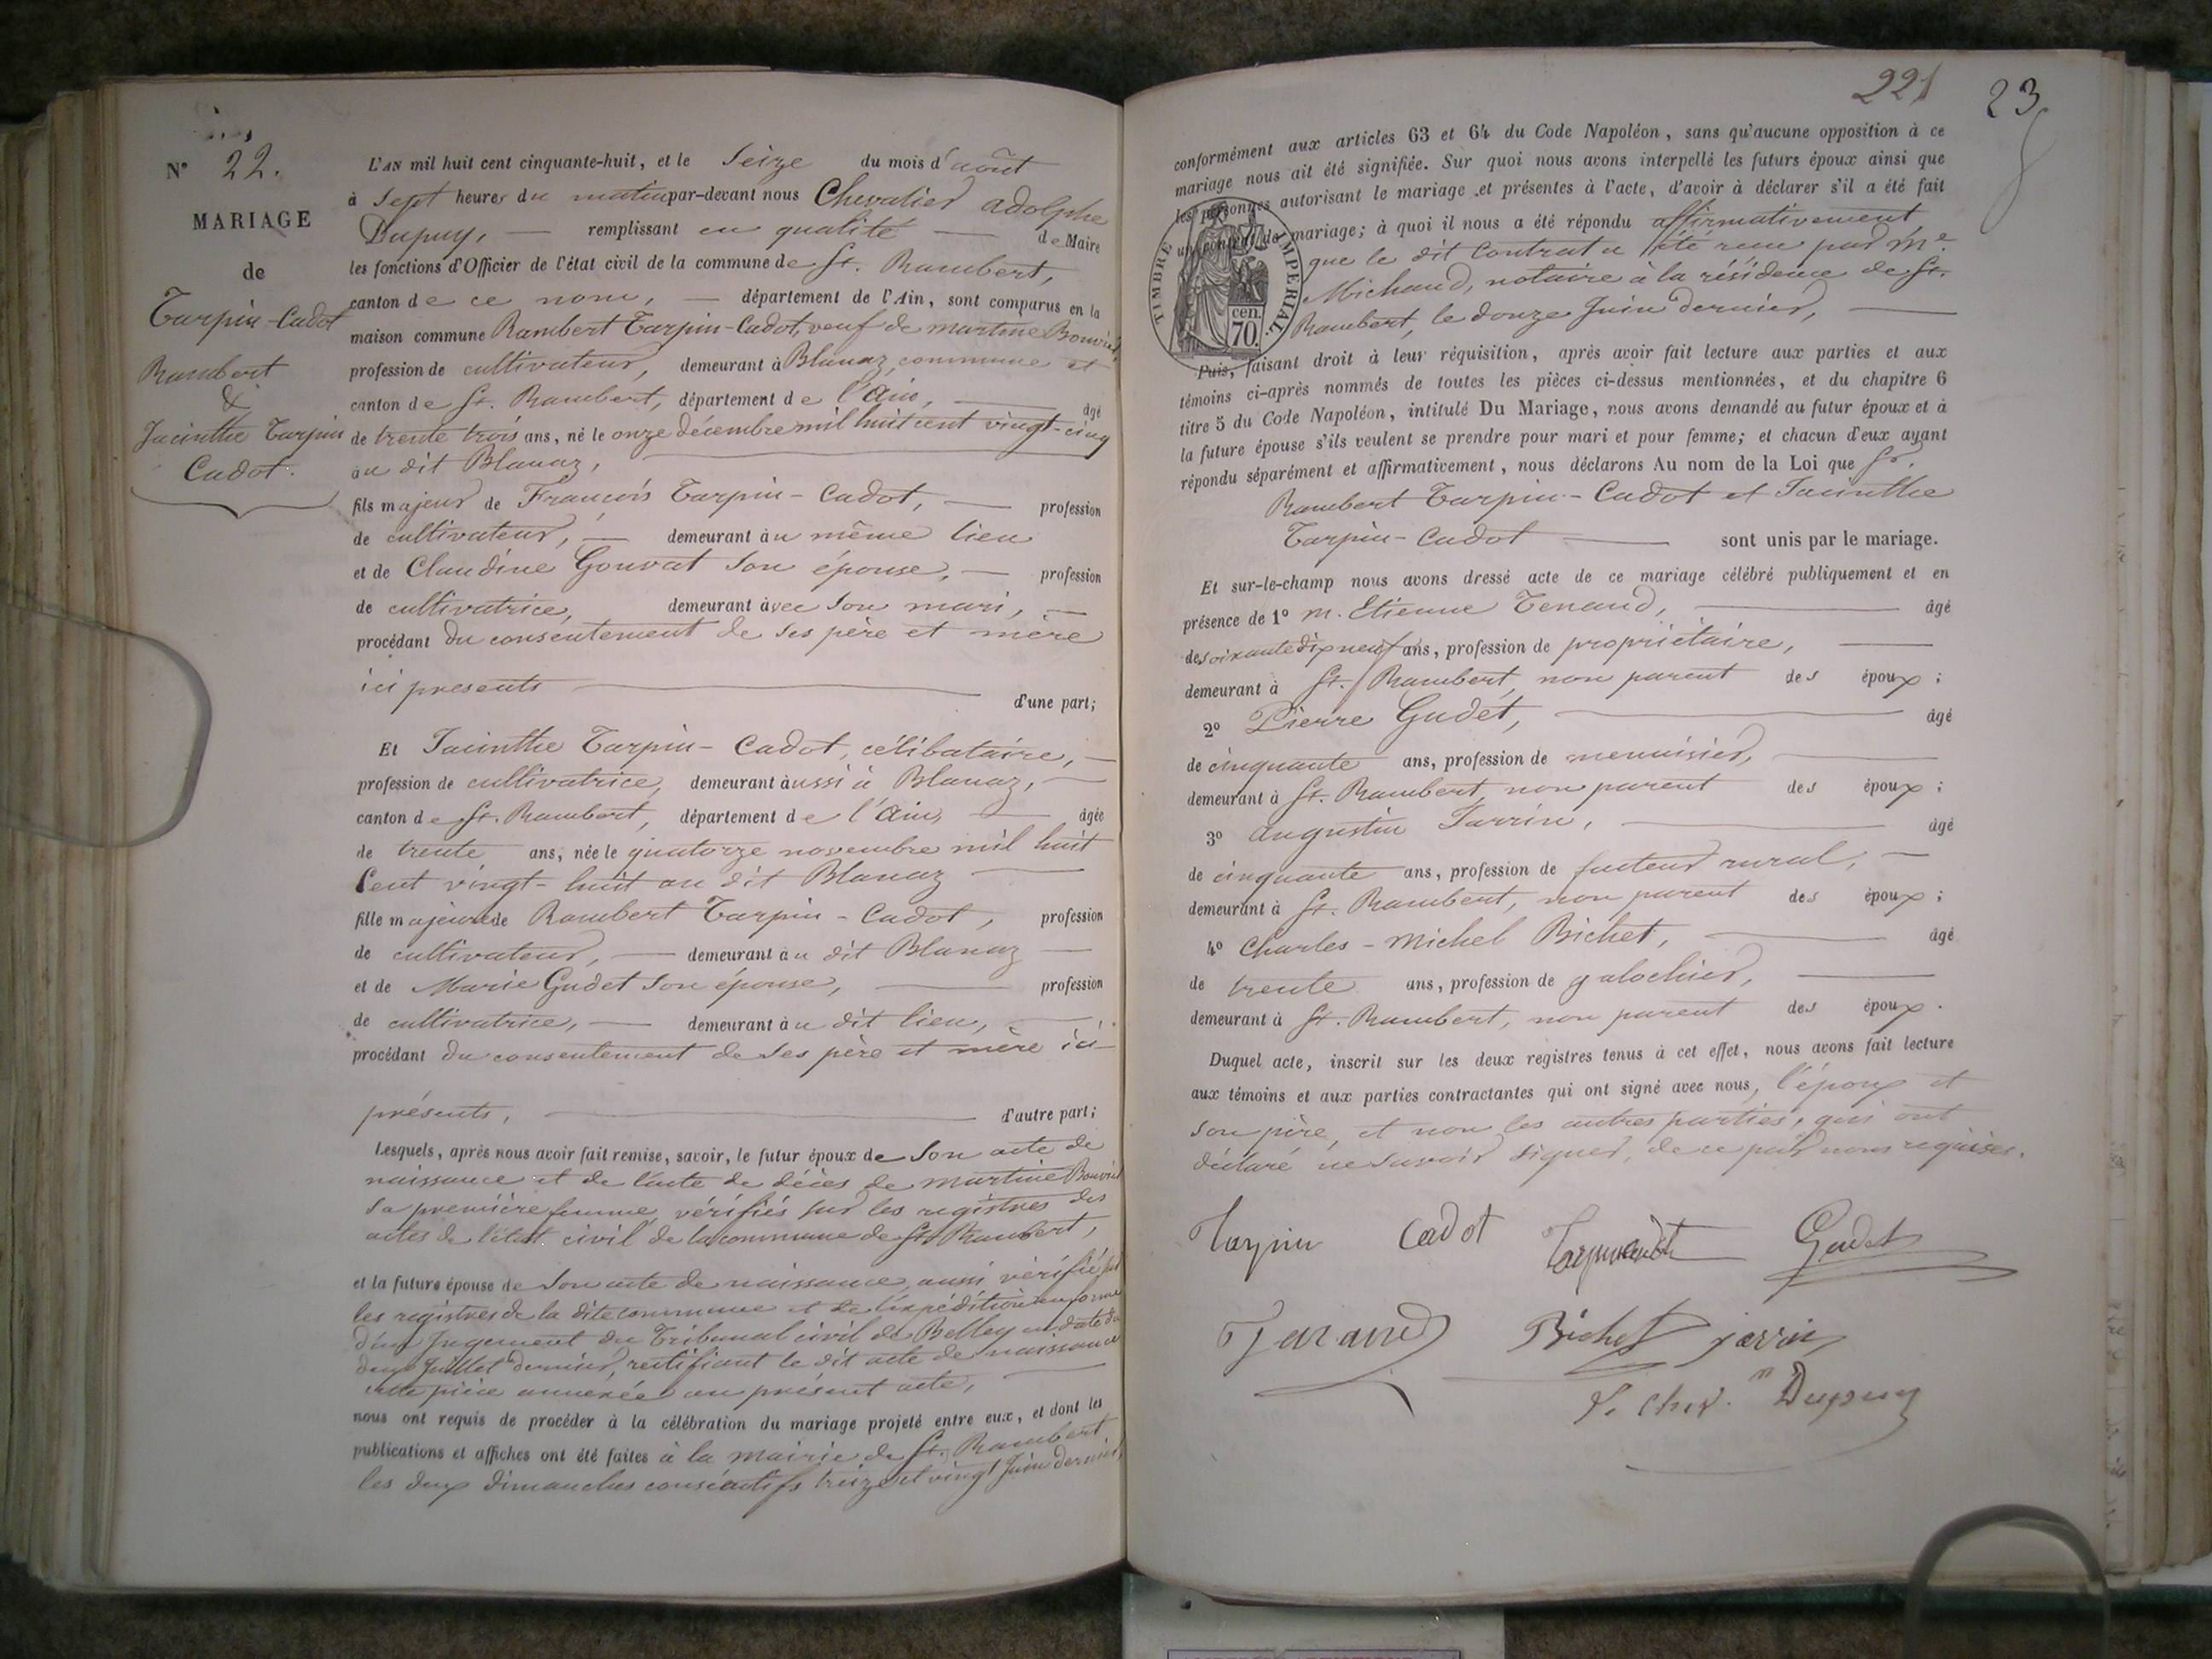 N° 22.
MARIAGE
de
Tarpin-Cadot
Rambert
&
Jacinthe Tarpin
Cadot.
L'AN mil huit cent cinquante-huit, et le Seize du mois d'août
à Sept heures du matin par-devant nous Chevalier Adolphe
Dupuy, — remplissant en qualité — de Maire
les fonctions d'Officier de l'état civil de la commune de St. Rambert,
canton de ce nom, — département de l'Ain, sont comparus en la
maison commune Rambert Tarpin-Cadot, veuf de martine Bouvier
profession de cultivateur, demeurant à Blanaz, commune et
canton de St. Rambert, département de l'Ain, — âgé
de trente trois ans, né le onze décembre mil huit cent vingt-cinq
au dit Blanaz,
fils majeur de François Tarpin-Cadot, — profession
de cultivateur, — demeurant au même lieu
et de Claudine Gouvat son épouse, — profession
de cultivatrice, demeurant avec son mari, —
procédant du consentement de ses père et mère
ici presents — d'une part;
Et Jacinthe Tarpin-Cadot, célibataire, —
profession de cultivatrice, demeurant aussi à Blanaz, —
canton de St. Rambert, département de l'Ain, — âgée
de trente ans, née le quatorze novembre mil huit
Cent vingt-huit au dit Blanaz —
fille majeure de Rambert Tarpin-Cadot, profession
de cultivateur, — demeurant au dit Blanaz —
et de Marie Gudet son épouse, — profession
de cultivatrice, — demeurant au dit lieu, —
procédant du consentement de ses père et mère ici-
présents, — d'autre part;
Lesquels, après nous avoir fait remise, savoir, le futur époux de son acte de
naissance et de l'acte de décès de martine Bouvier
sa première femme, vérifiés sur les registres des
actes de l'état civil de la commune de St. Rambert,
et la future épouse de son acte de naissance, aussi vérifié sur
les registres de la dite commune et de l'expédition en forme
d'un Jugement du Tribunal civil de Belley en date du
deux Juillet dernier, rectifiant le dit acte de naissance
cette pièce annexée au présent acte,
nous ont requis de procéder à la célébration du mariage projeté entre eux, et dont les
publications et affiches ont été faites à la mairie de St. Rambert
les deux dimanches consécutifs treize et vingt Juin dernier,
221 23
conformément aux articles 63 et 64 du Code Napoléon, sans qu'aucune opposition à ce
mariage nous ait été signifiée. Sur quoi nous avons interpellé les futurs époux ainsi que
les personnes autorisant le mariage et présentes à l'acte, d'avoir à déclarer s'il a été fait
un contrat de mariage; à quoi il nous a été répondu affirmativement,
que le dit contrat a été reçu par Me.
Michaud, notaire à la résidence de St.
Rambert, le douze Juin dernier, —
TIMBRE IMPERIAL.
cen.
70.
Puis, faisant droit à leur réquisition, après avoir fait lecture aux parties et aux
témoins ci-après nommés de toutes les pièces ci-dessus mentionnées, et du chapitre 6
titre 5 du Code Napoléon, intitulé Du Mariage, nous avons demandé au futur époux et à
la future épouse s'ils veulent se prendre pour mari et pour femme; et chacun d'eux ayant
répondu séparément et affirmativement, nous déclarons Au nom de la Loi que Sr.
Rambert Tarpin-Cadot et Jacinthe
Tarpin-Cadot — sont unis par le mariage.
Et sur-le-champ nous avons dressé acte de ce mariage célébré publiquement et en
présence de 1° M. Etienne Tenand, — âgé
de soixante dix neuf ans, profession de propriétaire, —
demeurant à St. Rambert, non parent des époux;
2° Pierre Gudet, — âgé
de cinquante ans, profession de menuisier, —
demeurant à St. Rambert, non parent des époux;
3° Augustin Jarrin, — âgé
de cinquante ans, profession de facteur rural, —
demeurant à St. Rambert, non parent des époux;
4° Charles-Michel Bichet, — âgé
de trente ans, profession de galochier, —
demeurant à St. Rambert, non parent des époux.
Duquel acte, inscrit sur les deux registres tenus à cet effet, nous avons fait lecture
aux témoins et aux parties contractantes qui ont signé avec nous, l'époux et
son père, et non les autres parties, qui ont
déclaré ne savoir signer, de ce par nous requises.
Tarpin Cadot Tarpin Cadot Gudet
Tenand Bichet jarrin
Le Cher. Dupuy